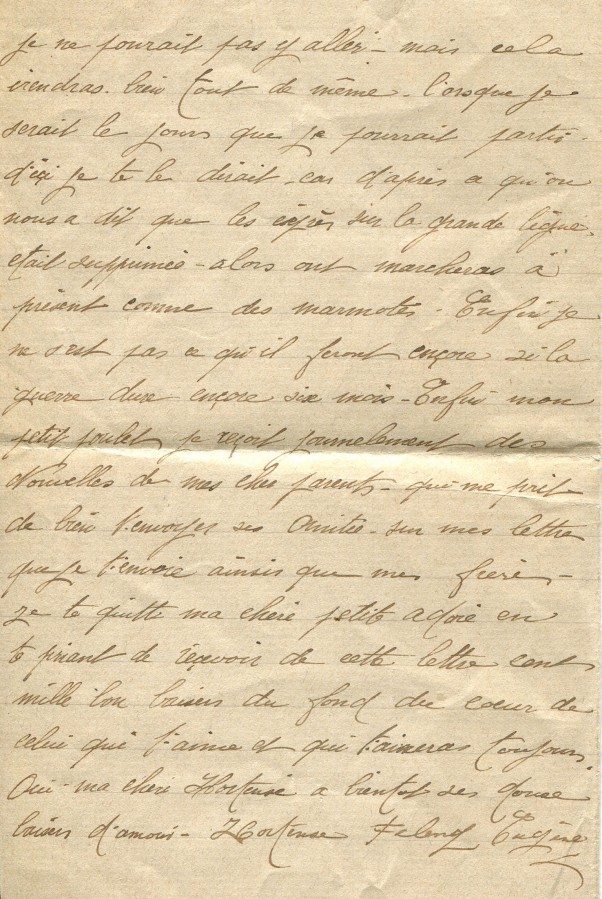 je ne pourait pas y aller - mais cela
viendras bien tout de même. lorsque je
serait le jours que je pourrait partir
d'içi je te le dirait - car d'après ce qu'on
nous a dit que les exprès sur la grande ligne,
était supprimés - alors ont marcheras à
présent comme des marmotes. Enfin je
ne s'est pas ce qu'il feront ençore si la
guerre dure ençore six mois - Enfin mon
petit poulet je reçoit journelement des
Nouvelles de mes cher parents - qui me prit
de bien t'envoyer ses Amitiés - sur mes lettre
que je t'envoie ainsis que mes frère -
Je te quitte ma chère petite adoré en
te priant de reçevoir de cette lettre cent
mille bon baisers du fond du cœur de
celui qui t'aime et qui t'aimeras toujours.
Oui ma chère Hortense a bientot ses douse
baisers d'amour - Hortense Eugène